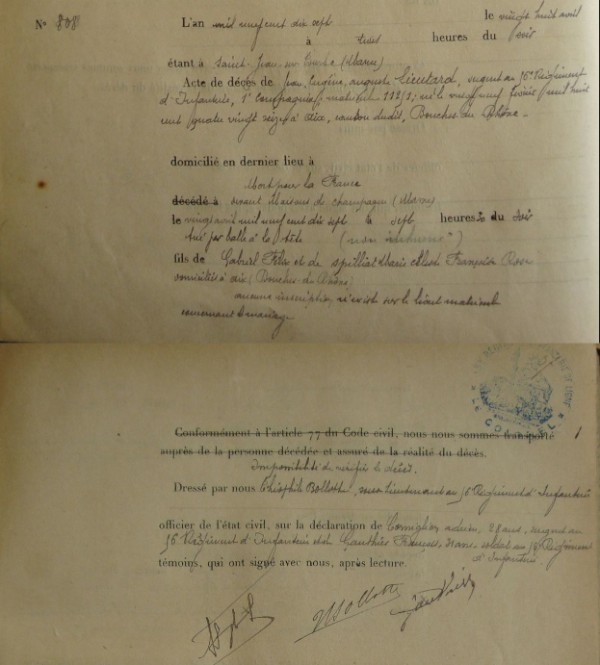 N° 808
L'an mil neuf cent dix sept le vingt huit avril
à trois heures du soir
étant à Saint-Jean-sur-Tourbe (Marne)
Acte de décès de Jean, Eugène, Auguste Lieutard, sergent au 56e Régiment
d'Infanterie, 1e compagnie, matricule né le vingt neuf février mil huit
cent quatre vingt seize à Aix, canton dudit, Bouches-du-Rhône.
domicilié en dernier lieu à
Mort pour la France
décédé à devant Maisons de Champagne (Marne)
le vingt avril mil neuf cent dix sept à sept heures du soir
tué par balle à la tête (non inhumé)
fils de Gabriel Félix et de Marie Françoise Rose
domiciliés à Aix (Bouches-du-Rhône)
aucune inscription n'existe sur le livret matricule
concernant le mariage
Conformément à l'article 77 du Code civil, nous nous sommes transporté
auprès de la personne décédée et assuré de la réalité du décès.
Impossibilité de vérifier le décès.
Dressé par nous Théophile sous lieutenant au 56 Régiment d'Infanterie
officier de l'état civil, sur la déclaration de 28 ans, sergent au
56e Régiment d'Infanterie et de Gauthier François, soldat au 56 Régiment
d'Infanterie
témoins, qui ont signé avec nous, après lecture.